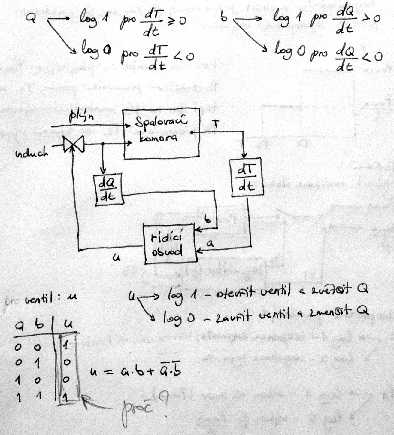 a → log 1 pro dT/dt ≥ 0
→ log 0 pro dT/dt < 0
b → log 1 pro dQ/dt > 0
→ log 0 pro dQ/dt < 0
plyn
vzduch
Spalovací
komora
T
dQ/dt
dT/dt
b
a
řídicí
obvod
u
pro ventil: u
u → log 1 - otevřít ventil a zvětšit Q
→ log 0 - zavřít ventil a zmenšit Q
a b | u
0 0 | 1
0 1 | 0
1 0 | 0
1 1 | 1
u = a.b + a̅.b̅
proč?